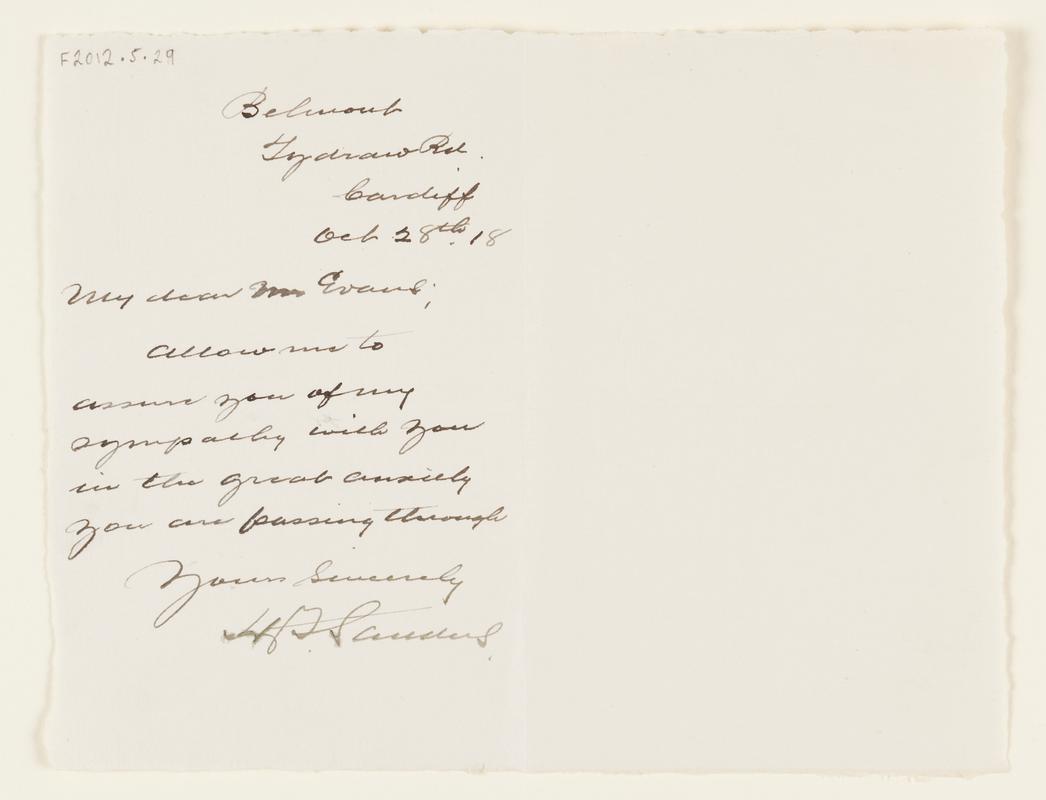 F2012.5.29
Belmont
Tydraw Rd.
Cardiff
Oct 28th. 18
My dear Evans;
Allow me to
assure you of my
sympathy with you
in the great anxiety
you are passing through
Yours Sincerely
Sanders.